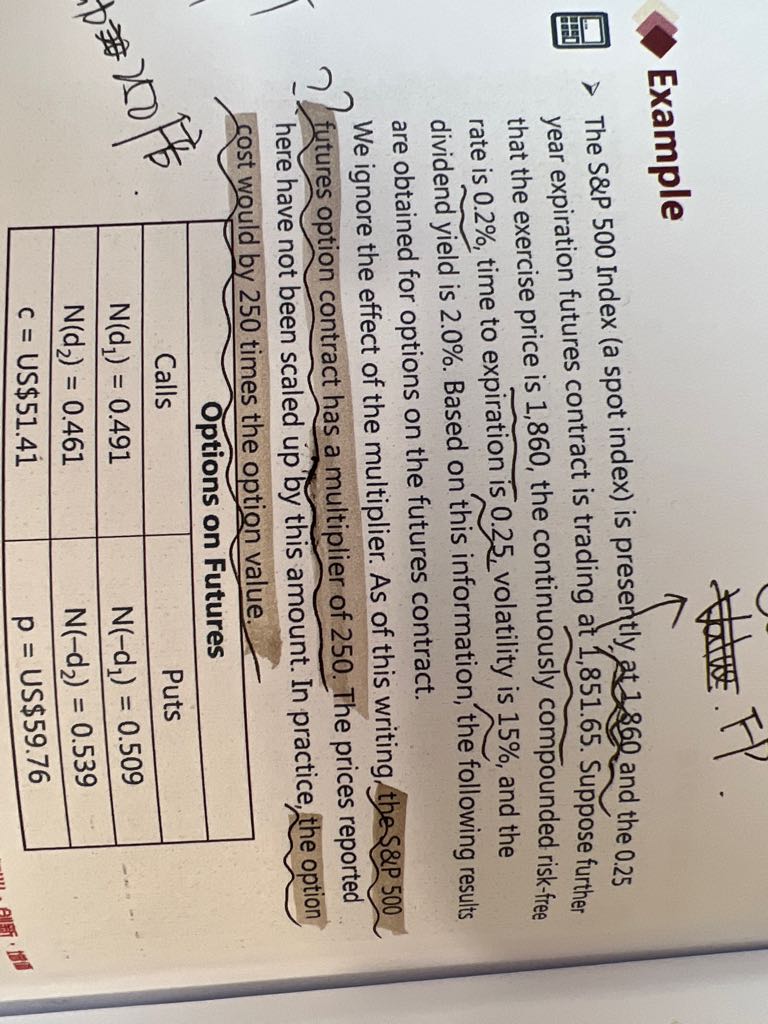 Example
➤ The S&P 500 Index (a spot index) is presently at 1,860 and the 0.25
year expiration futures contract is trading at 1,851.65. Suppose further
that the exercise price is 1,860, the continuously compounded risk-free
rate is 0.2%, time to expiration is 0.25, volatility is 15%, and the
dividend yield is 2.0%. Based on this information, the following results
are obtained for options on the futures contract.
We ignore the effect of the multiplier. As of this writing, the S&P 500
futures option contract has a multiplier of 250. The prices reported
here have not been scaled up by this amount. In practice, the option
cost would by 250 times the option value.
??
FP.
Options on Futures
Calls Puts
N(d₁) = 0.491 N(−d₁) = 0.509
N(d₂) = 0.461 N(−d₂) = 0.539
c = US$51.41 p = US$59.76